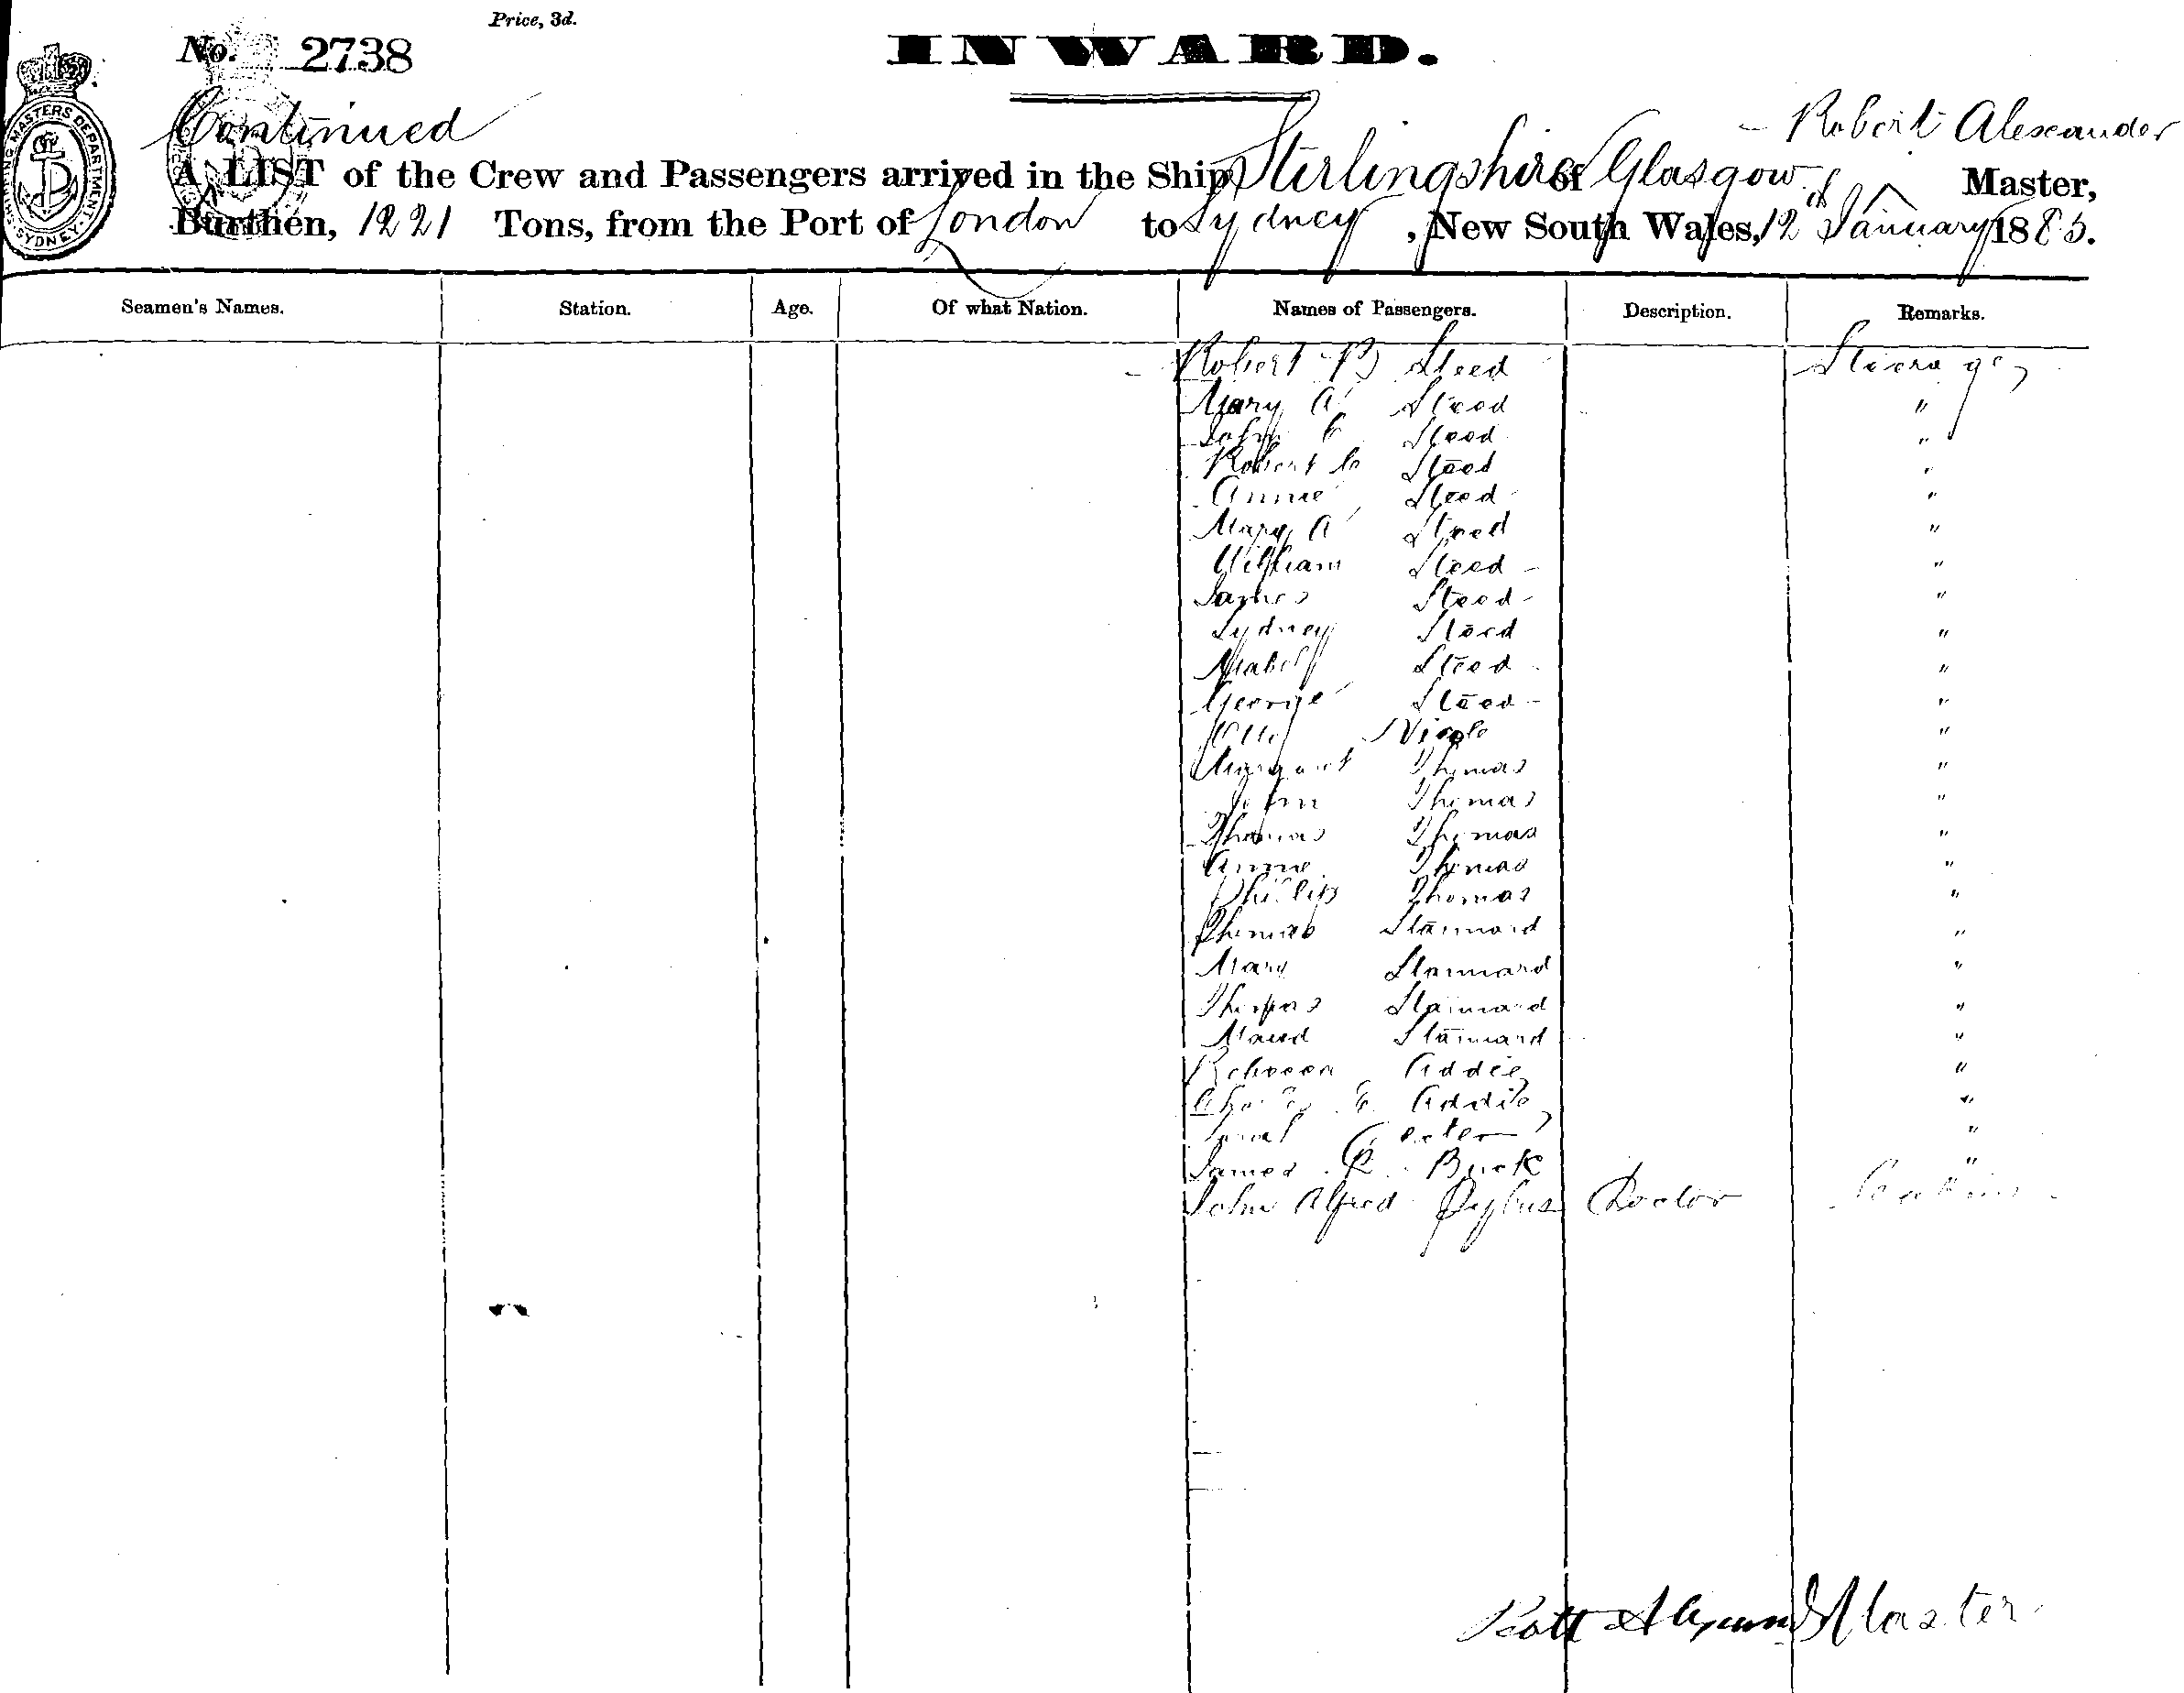 Price, 3d.
No. 2738
INWARD.
SHIPPING MASTERS DEPARTMENT SYDNEY
Continued
Robert Alexander
A LIST of the Crew and Passengers arrived in the Ship Stirlingshire of Glasgow Master,
Burthen, 1221 Tons, from the Port of London to Sydney, New South Wales, 12th January 1885.
Seamen's Names. Station. Age. Of what Nation. Names of Passengers. Description. Remarks.
Robert Steed Steerage
Mary A Steed "
John Steed "
Robert Steed "
Annie Steed "
Mary A Steed "
William Steed "
James Steed "
Sydney Steed "
Mabel Steed "
George Steed "
"
Margaret Thomas "
John Thomas "
Thomas Thomas "
Annie Thomas "
Phillip Thomas "
Thomas Stannard "
Mary Stannard "
Thomas Stannard "
Maud Stannard "
Rebecca Addie "
Addie "
"
James R. Buck "
John Alfred Doctor
Robt Alexander Master